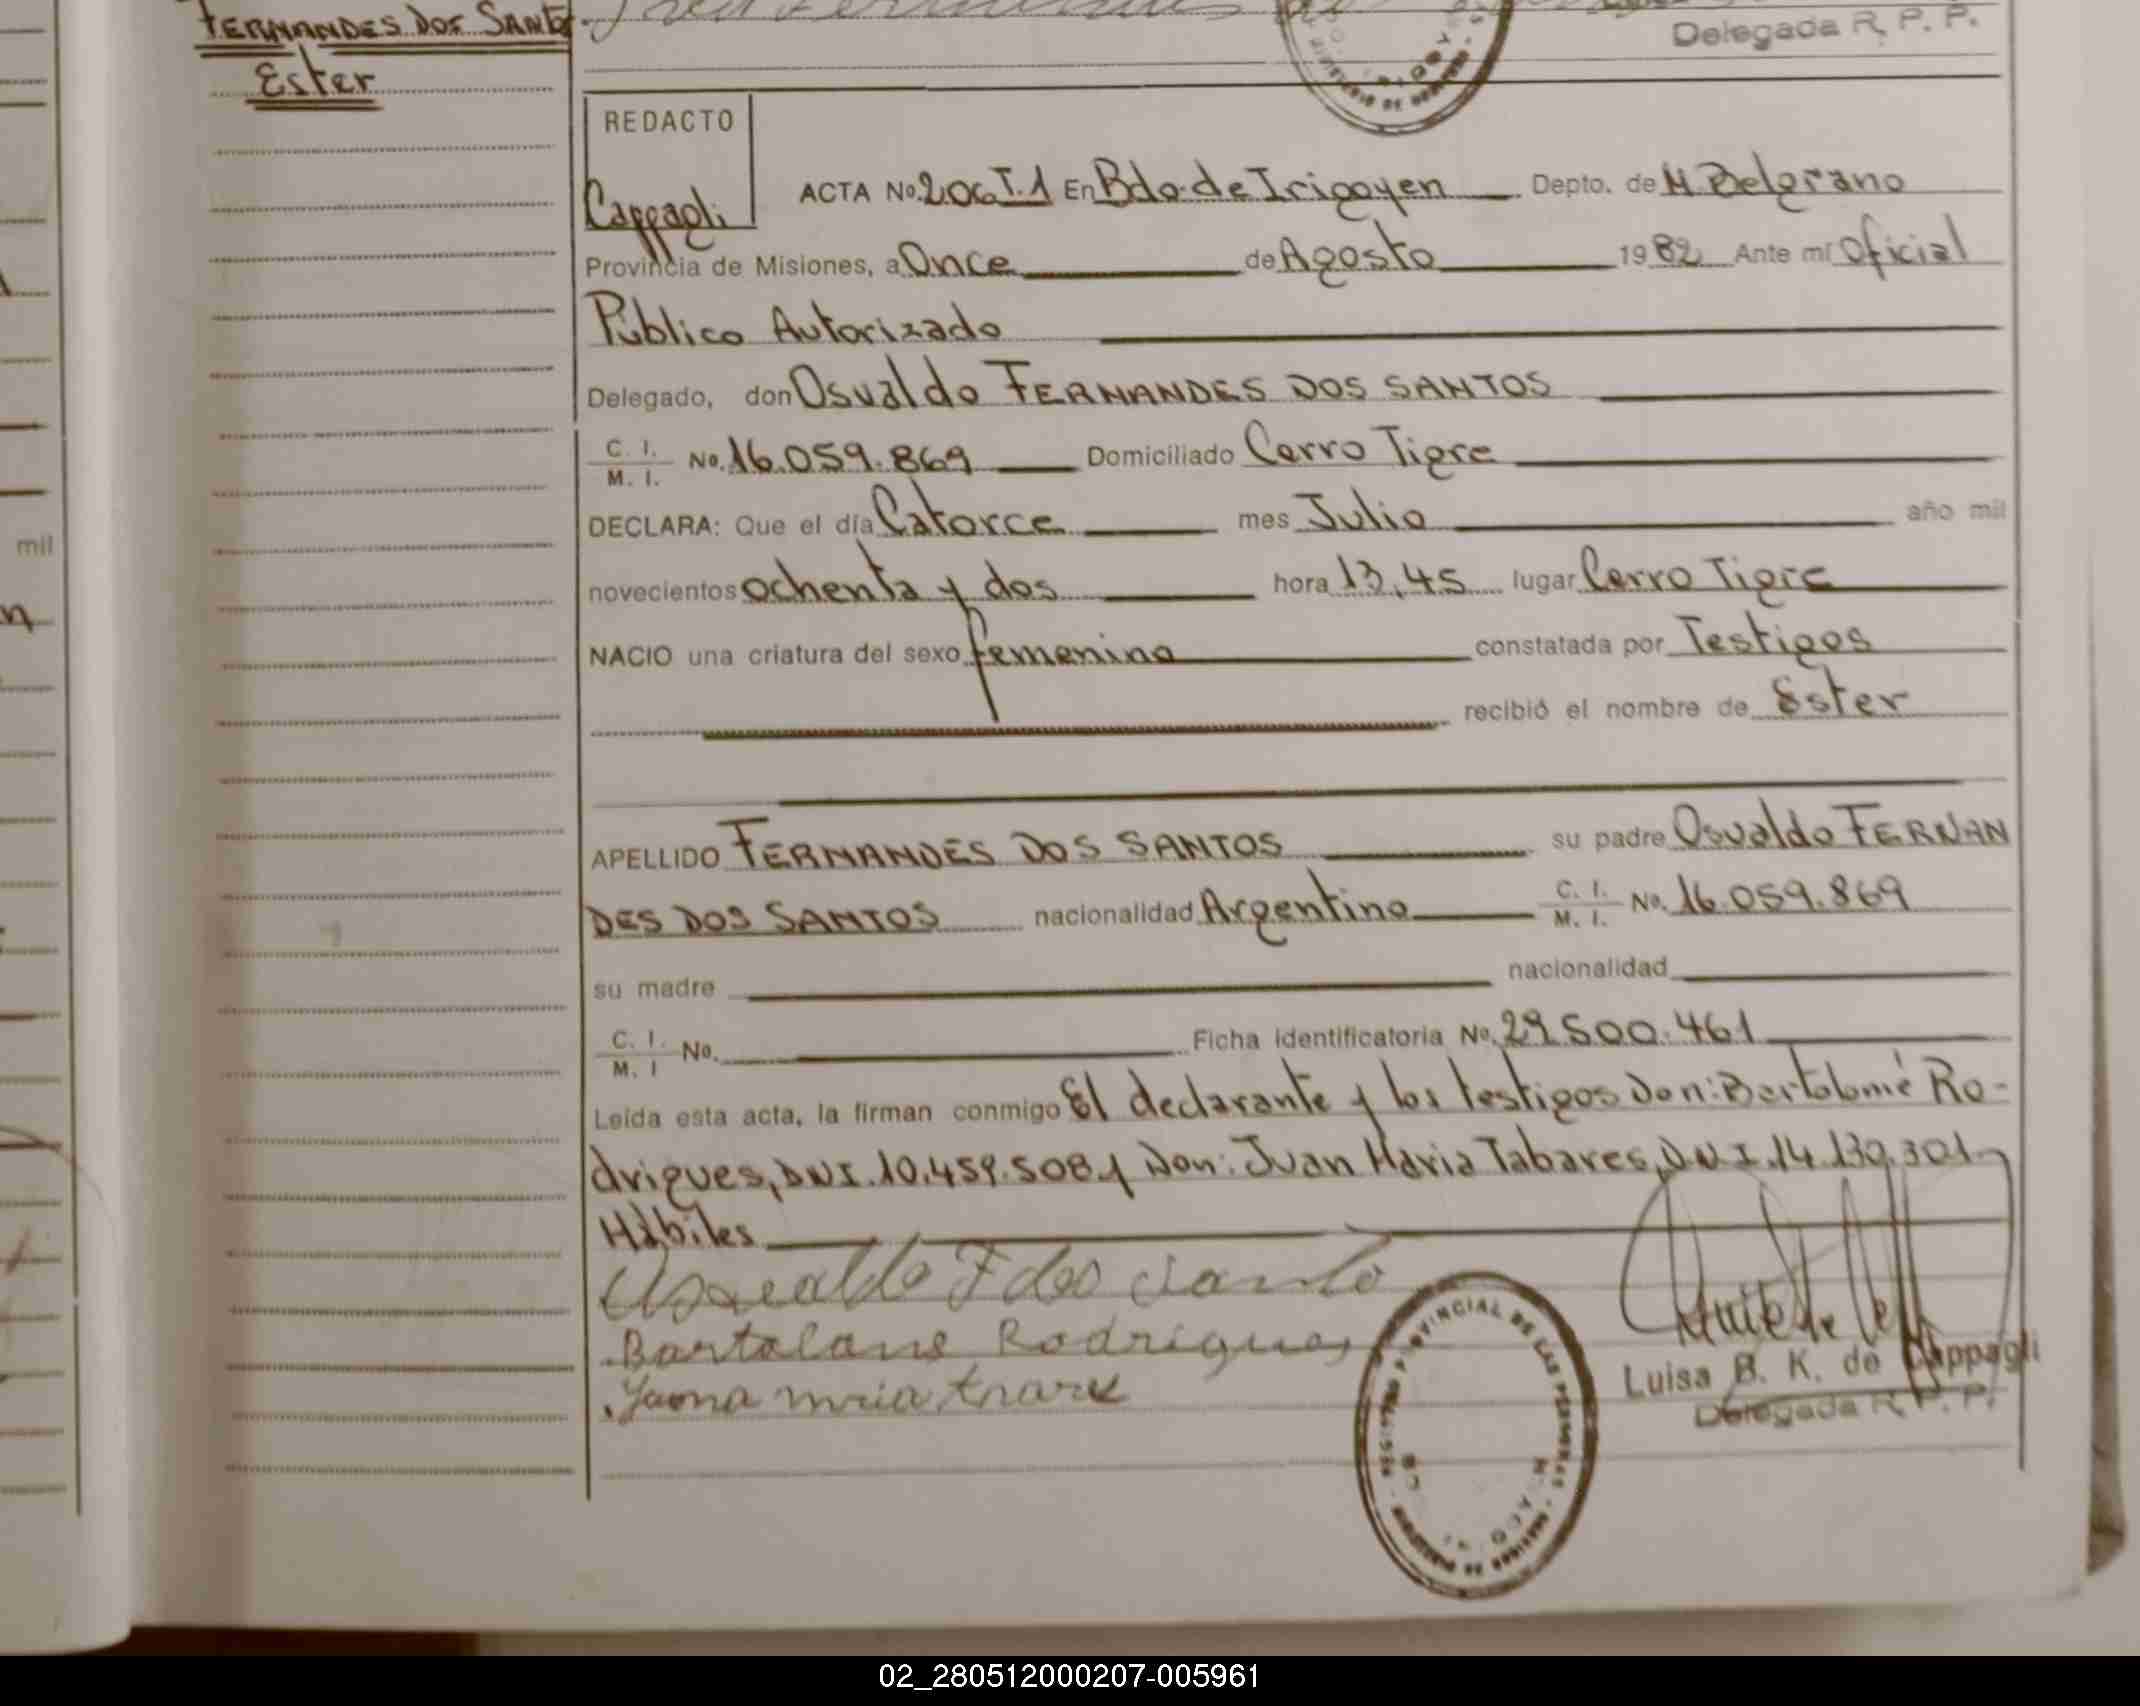 FERNANDES DOS SANTOS
Ester
Delegada R. P. P.
REDACTO
Cappagli
ACTA No. 206 T.1 En Bdo. de Irigoyen Depto. de M. Belgrano
Provincia de Misiones, a Once de Agosto 1982 Ante mí Oficial
Público Autorizado
Delegado, don Osvaldo FERNANDES DOS SANTOS
C. I. M. I. No. 16.059.869 Domiciliado Cerro Tigre
DECLARA: Que el día Catorce mes Julio año mil
novecientos ochenta y dos hora 13,45 lugar Cerro Tigre
NACIO una criatura del sexo femenino constatada por Testigos
recibió el nombre de Ester
APELLIDO FERNANDES DOS SANTOS su padre Osvaldo FERNAN
DES DOS SANTOS nacionalidad Argentino C. I. M. I. No. 16.059.869
su madre nacionalidad
C. I. M. I No. Ficha identificatoria No. 29.500.461
Leída esta acta, la firman conmigo El declarante y los testigos Don: Bartolomé Ro-
drigues, DNI. 10.459.508 y Don: Juan Maria Tabares, D.N.I. 14.130.301
Hábiles
Osvaldo F dos Santo
Bartolome Rodrigues
REGISTRO PROVINCIAL DE LAS PERSONAS
Luisa B. K. de Cappagli
Delegada R. P. P.
mil
02_280512000207-005961